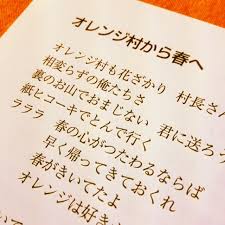 オレンジ村から春へ
オレンジ村も花ざかり　村長さん
相変らずの俺たちさ　君に送ろう
裏のお山でおまじない
紙ヒコーキでとんで行く
ラララ
春の心がつたわるならば
早く帰ってきておくれ
春がきいてたよ
オレンジは好き